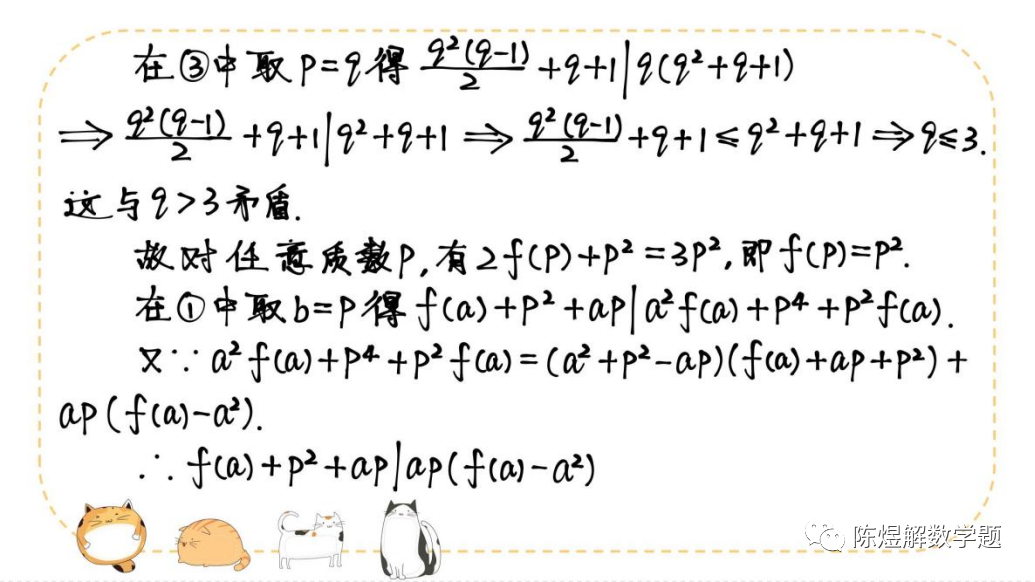 在③中取P=q得 q²(q-1)/2+q+1|q(q²+q+1)
⟹ q²(q-1)/2+q+1|q²+q+1⟹ q²(q-1)/2+q+1≤q²+q+1⟹q≤3.
这与q>3矛盾.
故对任意质数P,有2f(P)+P²=3P²,即f(P)=P².
在①中取b=P得f(a)+P²+aP|a²f(a)+P⁴+P²f(a).
又∵a²f(a)+P⁴+P²f(a)=(a²+P²-aP)(f(a)+aP+P²)+
aP(f(a)-a²).
∴f(a)+P²+aP|aP(f(a)-a²)
陈煜解数学题